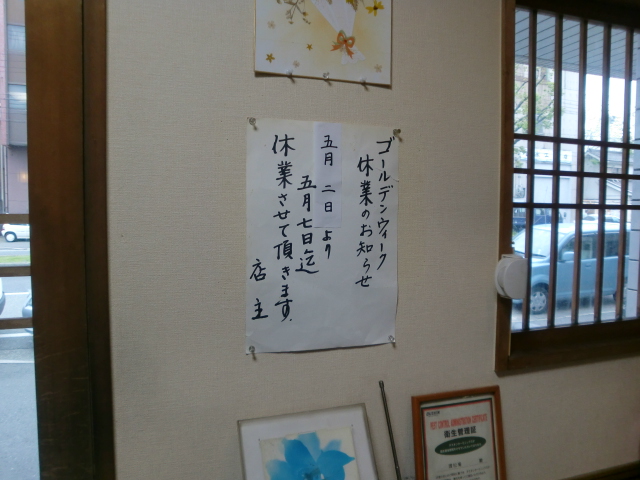 ゴールデンウィーク
休業のお知らせ
五月 二日 より
五月七日迄
休業させて頂きます。
店 主
PEST CONTROL ADMINISTRATION CERTIFICATE
衛生管理証